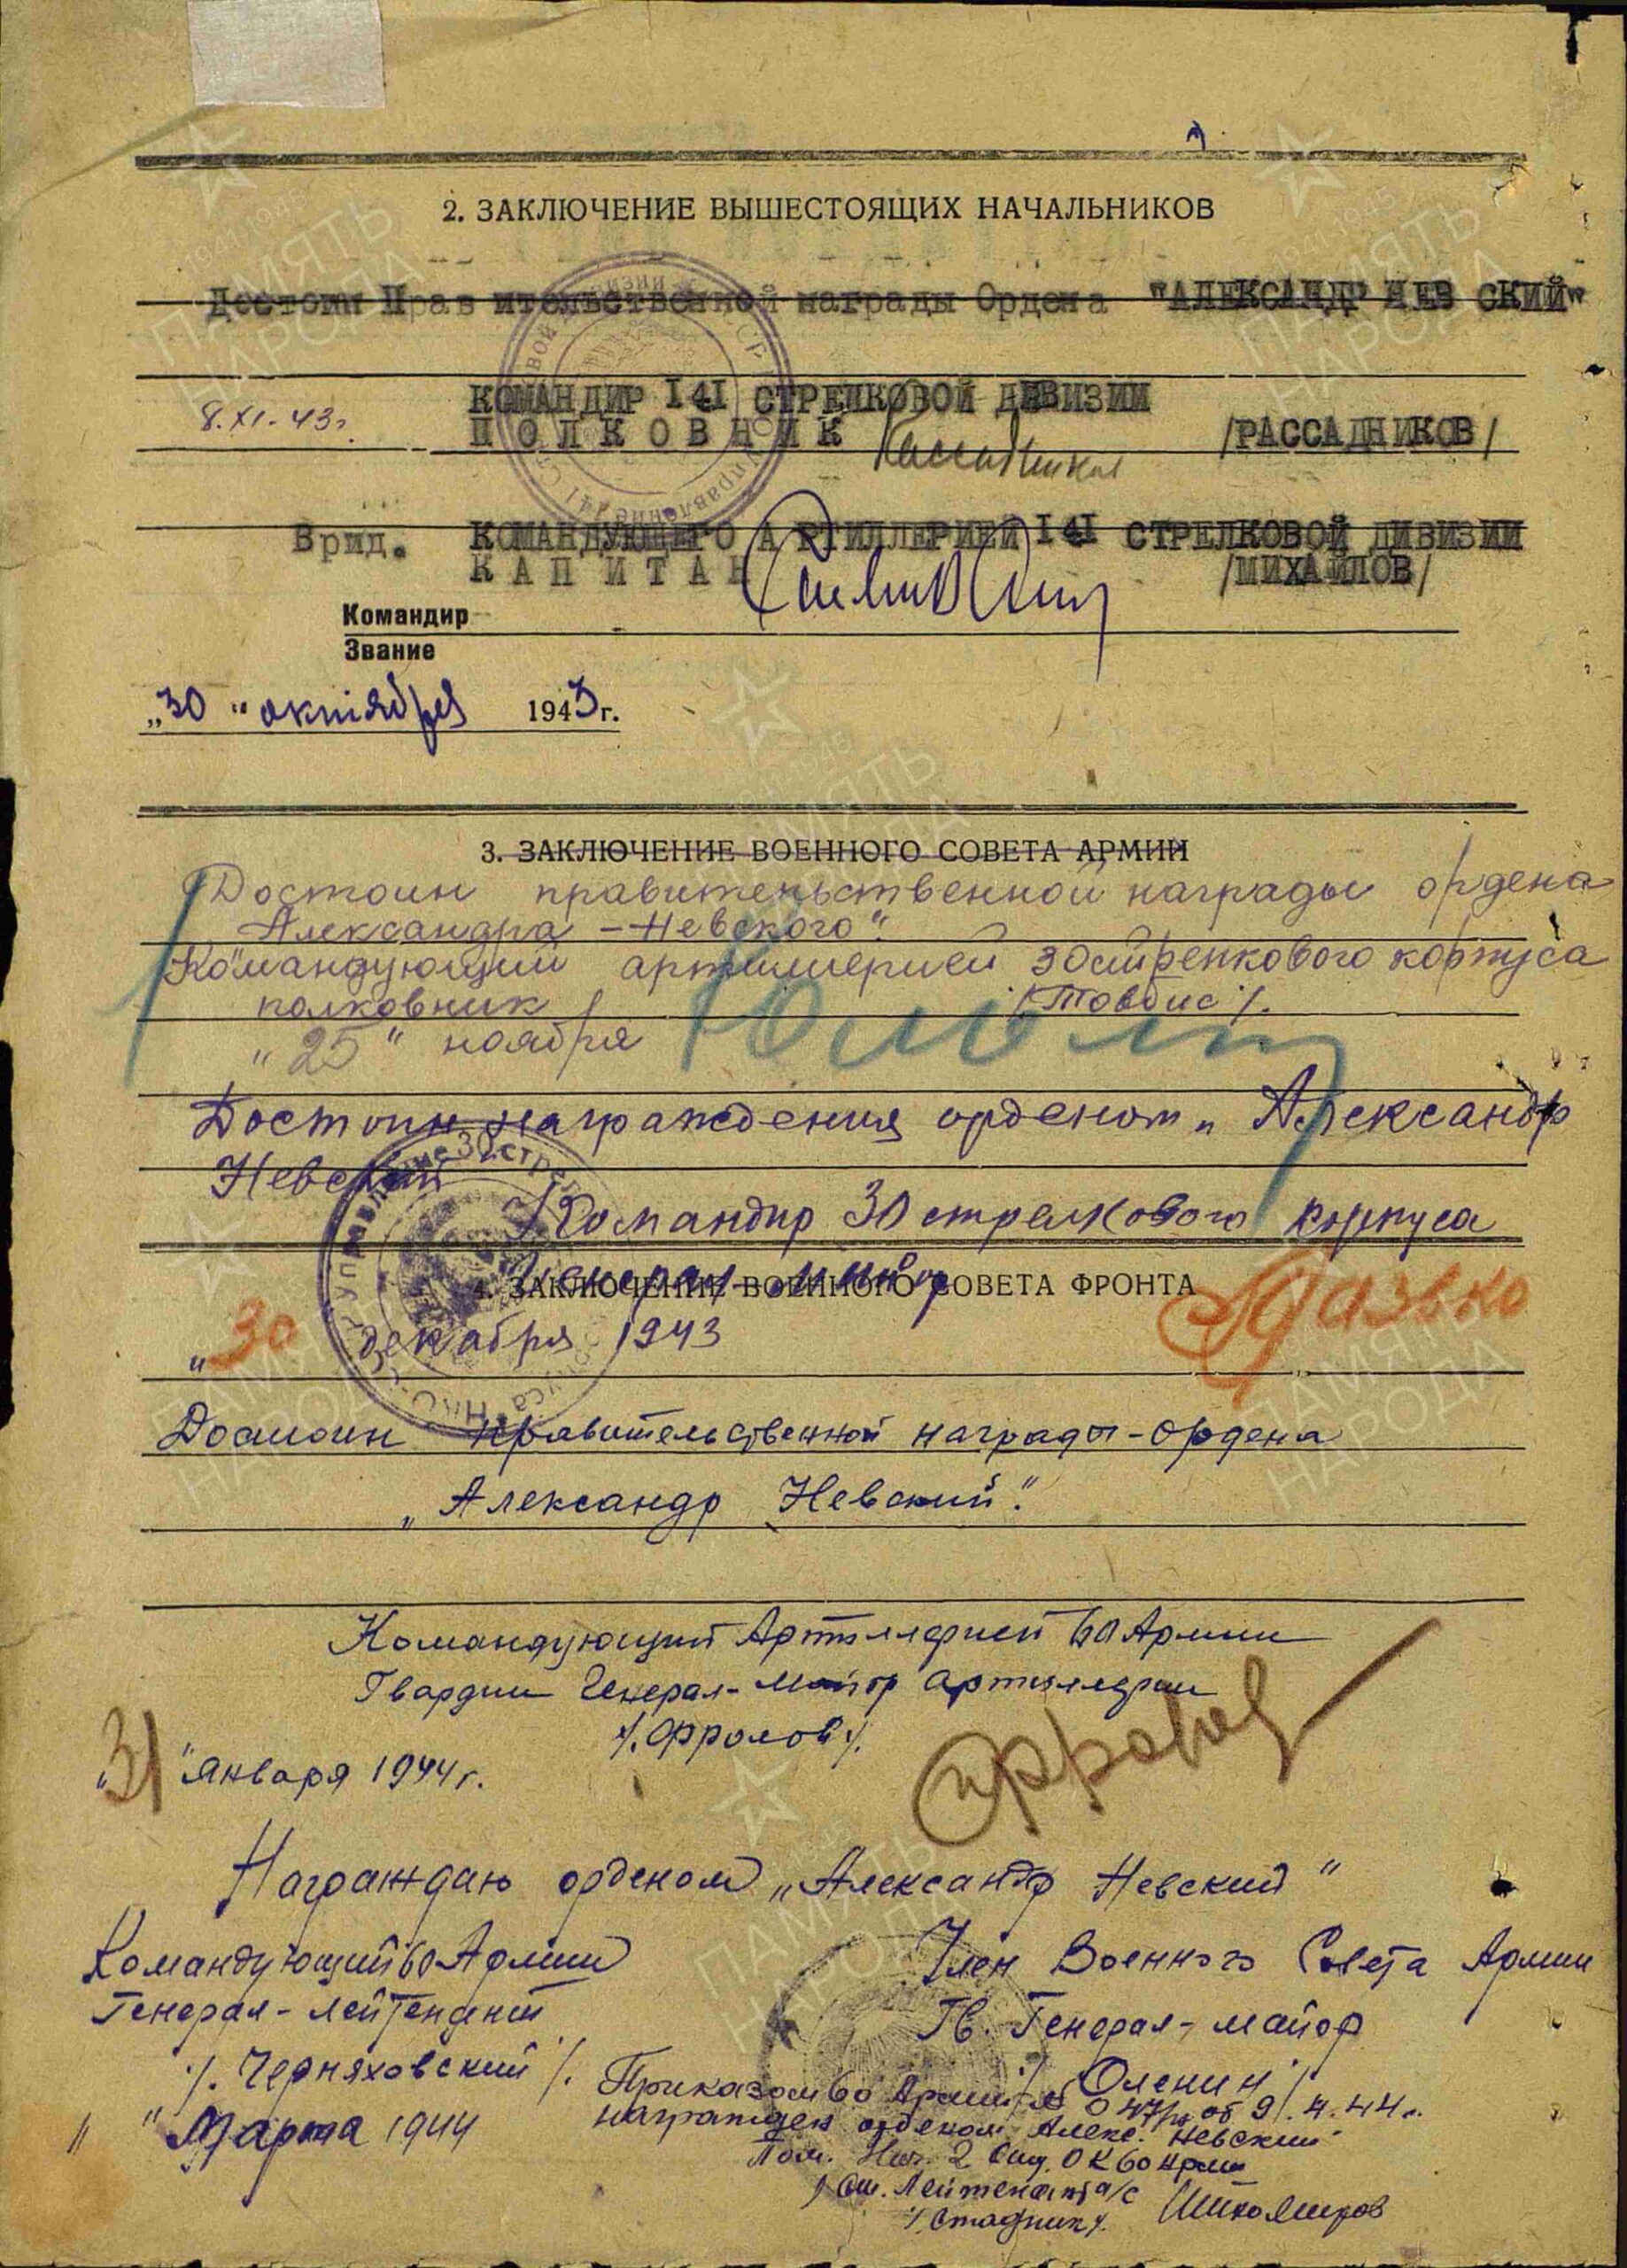 2. ЗАКЛЮЧЕНИЕ ВЫШЕСТОЯЩИХ НАЧАЛЬНИКОВ
Достоин Прав ительственной награды Ордена "АЛЕКСАНДР НЕВ СКИЙ"
КОМАНДИР 141 СТРЕЛКОВОЙ ДИВИЗИИ
8.XI-43г.
ПОЛКОВНИК /РАССАДНИКОВ/
Врид. КОМАНДУЮЩЕГО А РТИЛЛЕРИЕЙ 141 СТРЕЛКОВОЙ ДИВИЗИИ
КАПИТАН /МИХАЙЛОВ/
Командир
Звание
„30" октября 1943 г.
3. ЗАКЛЮЧЕНИЕ ВОЕННОГО СОВЕТА АРМИИ
Достоин правительственной награды ордена
Александра-Невского".
Командующий артиллерией 30 стрелкового корпуса
полковник
„25" ноября
Достоин награждения орденом „Александр
Невский
Командир 30 стрелкового корпуса
генерал-майор
4. ЗАКЛЮЧЕНИЕ ВОЕННОГО СОВЕТА ФРОНТА
Лазько
„30 декабря 1943
Достоин правительственной награды-ордена
„Александр Невский".
Командующий Артиллерией 60 Армии
Гвардии Генерал-майор артиллерии
/.Фролов/.
Фролов
„31" января 1944 г.
Награждаю орденом „Александр Невский"
Командующий 60 Армии
Генерал-лейтенант
/. Черняховский /.
" " Марта 1944
Член Военного Совета Армии
Гв. Генерал-майор
/Оленин/
Приказом 60 Армии № 047/н от 9.4.44 г.
награжден орденом Алекс. Невский
Пом. Нач. 2 Отд. ОК 60 Армии
Ст. Лейтенант а/с
/.Стадник/.
ПАМЯТЬ
НАРОДА
1941 1945